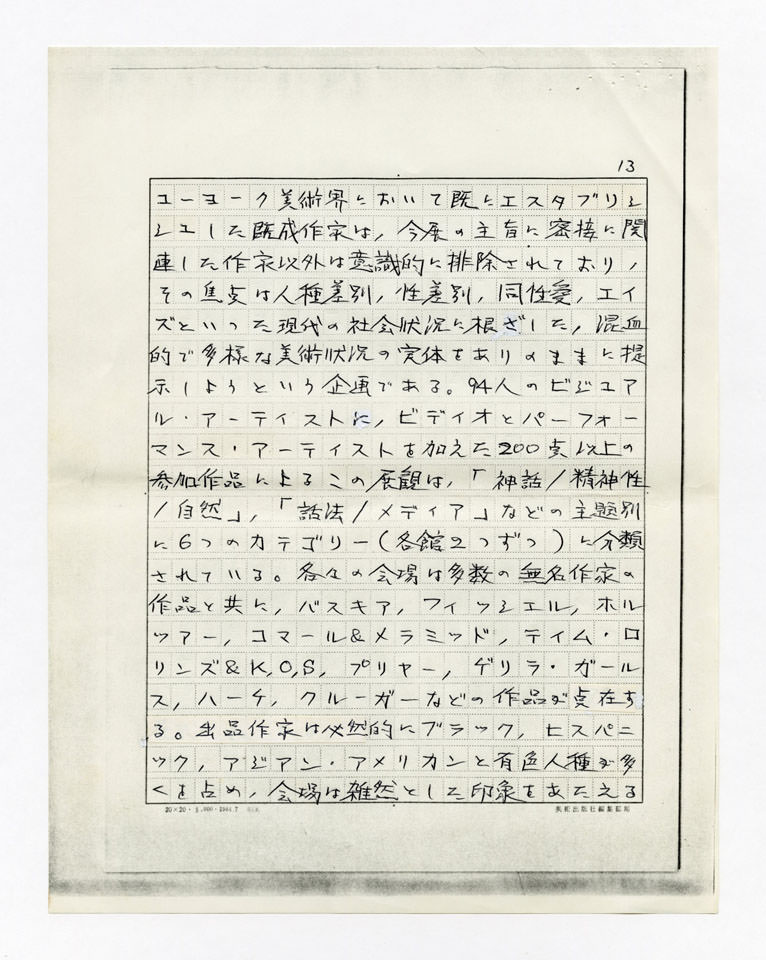 13
ューヨーク美術界において既にエスタブリシ
シュした既成作家は,今展の主旨に密接に関
連した作家以外は意識的に排除されており,
その焦点は人種差別,性差別,同性愛,エイ
ズといった現代の社会状況に根ざした,混血
的で多様な美術状況の実体をありのままに提
示しようという企画である。94人のビジュア
ル・アーティストに,ビディオとパーフォー
マンス・アーティストを加えた200点以上の
参加作品によるこの展観は,「神話/精神性
/自然」,「話法/メディア」などの主題別
に6つのカテゴリー(各館2つずつ)に分類
されている。各々の会場は多数の無名作家の
作品と共に,バスキア,フィッシェル,ホル
ツアー,コマール&メラミッド,ティム・ロ
リンズ&K,O,S,プリヤー,ゲリラ・ガール
ス,ハーチ,クルーガーなどの作品が点在す
る。出品作家は必然的にブラック,ヒスパニ
ック,アジアン・アメリカンと有色人種が多
くを占め,会場は雑然とした印象をあたえる
20×20・
美術出版社編集部用